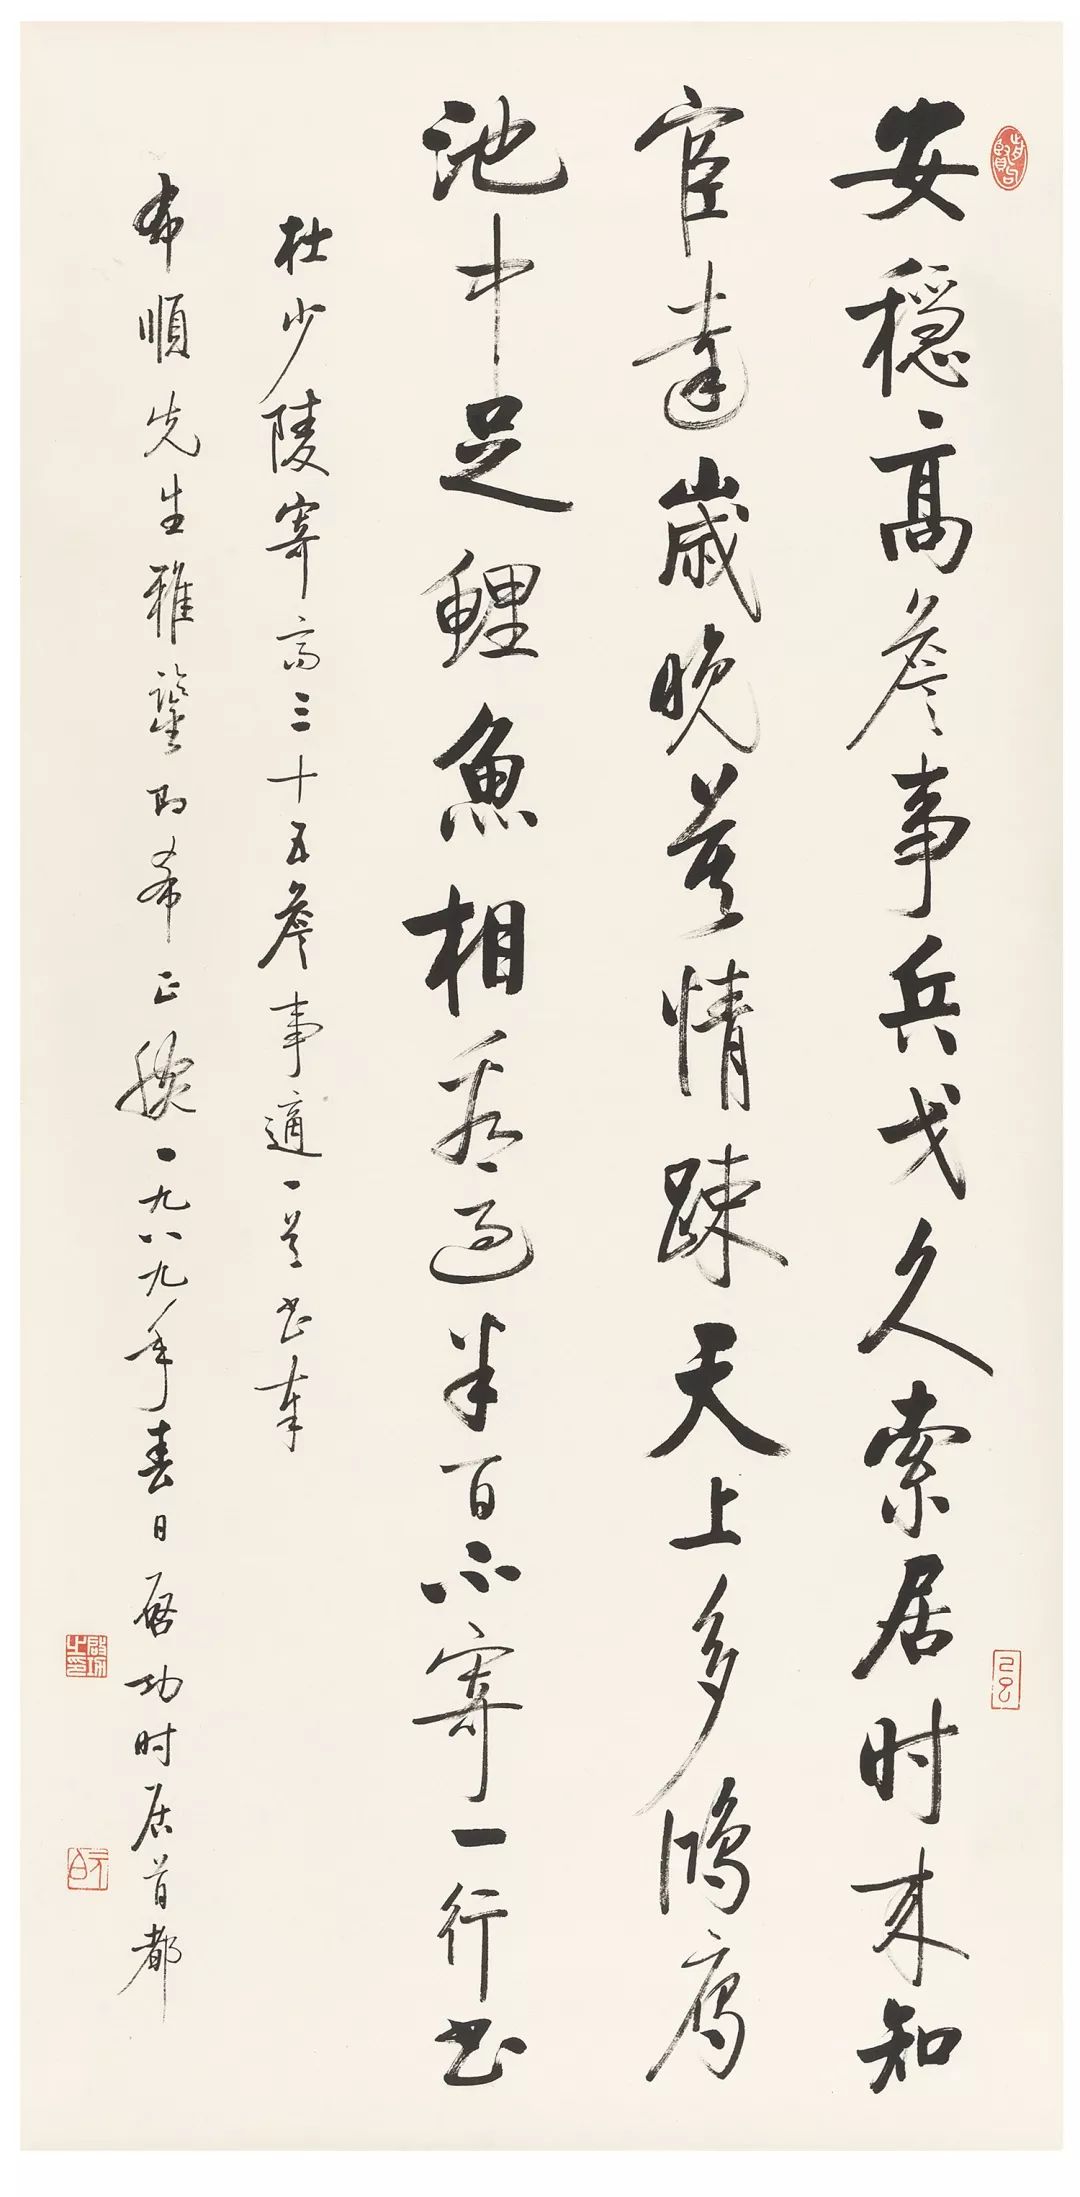 安穩高詹事兵戈久索居时来知
宦達歲晚莫情踈天上多鴻鴈
池中足鯉魚相看過半百不寄一行书
杜少陵寄高三十五詹事適一首书奉
希順先生雅鑒即希正腕一九八九年春日啓功时居首都
啟功之印
元白